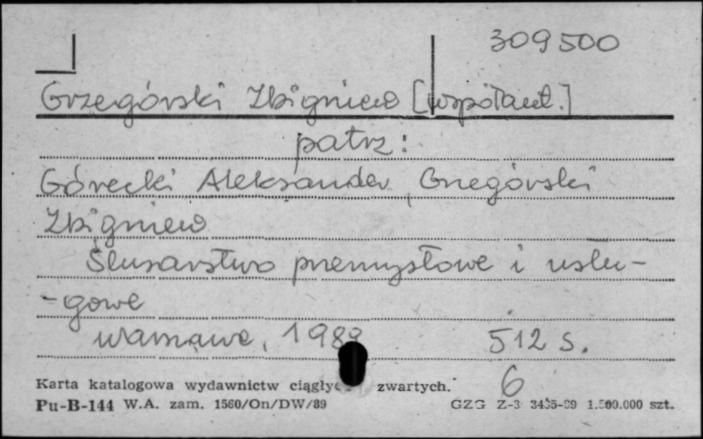 309500
Grzegórski Zbigniew [współaut.]
patrz:
Górecki Aleksander, Grzegórski
Zbigniew
Ślusarstwo przemysłowe i usłu-
-gowe
Warszawa, 1989 512 s.
6
Karta katalogowa wydawnictw zwartych.
Pu-B-144 W.A. zam. 1560/On/DW/89 GZG Z-3 1.500.000 szt.